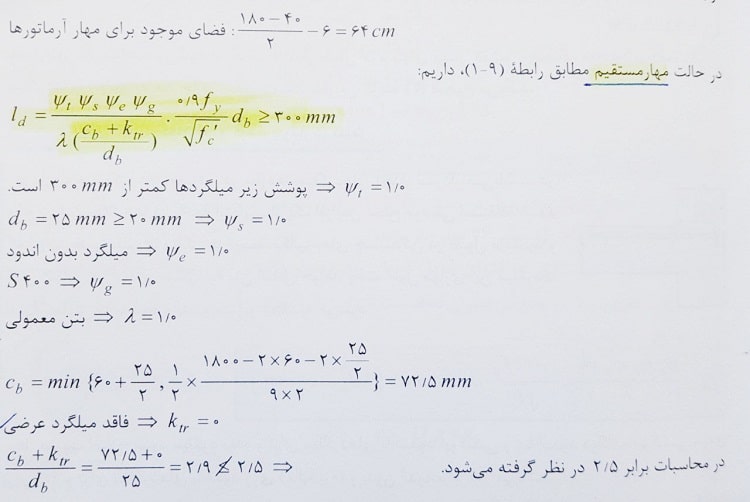 فضای موجود برای مهار آرماتورها : (۱۸۰ − ۴۰)/۲ − ۶ = ۶۴ cm
در حالت مهار مستقیم مطابق رابطهٔ (۹-۱)، داریم:
l_d = (ψ_t ψ_s ψ_e ψ_g)/(λ((c_b + k_tr)/d_b)) . (۰/۹ f_y)/(√f_c′) d_b ≥ ۳۰۰ mm
پوشش زیر میلگردها کمتر از ۳۰۰ mm است. ⇒ ψ_t = ۱/۰
d_b = ۲۵ mm ≥ ۲۰ mm ⇒ ψ_s = ۱/۰
میلگرد بدون اندود ⇒ ψ_e = ۱/۰
S۴۰۰ ⇒ ψ_g = ۱/۰
بتن معمولی ⇒ λ = ۱/۰
c_b = min {۶۰ + ۲۵/۲ , ۱/۲ × (۱۸۰۰ − ۲×۶۰ − ۲×۲۵/۲)/(۹×۲)} = ۷۲/۵ mm
فاقد میلگرد عرضی ⇒ k_tr = ۰
(c_b + k_tr)/d_b = (۷۲/۵ + ۰)/۲۵ = ۲/۹ ≰ ۲/۵ ⇒ در محاسبات برابر ۲/۵ در نظر گرفته می‌شود.